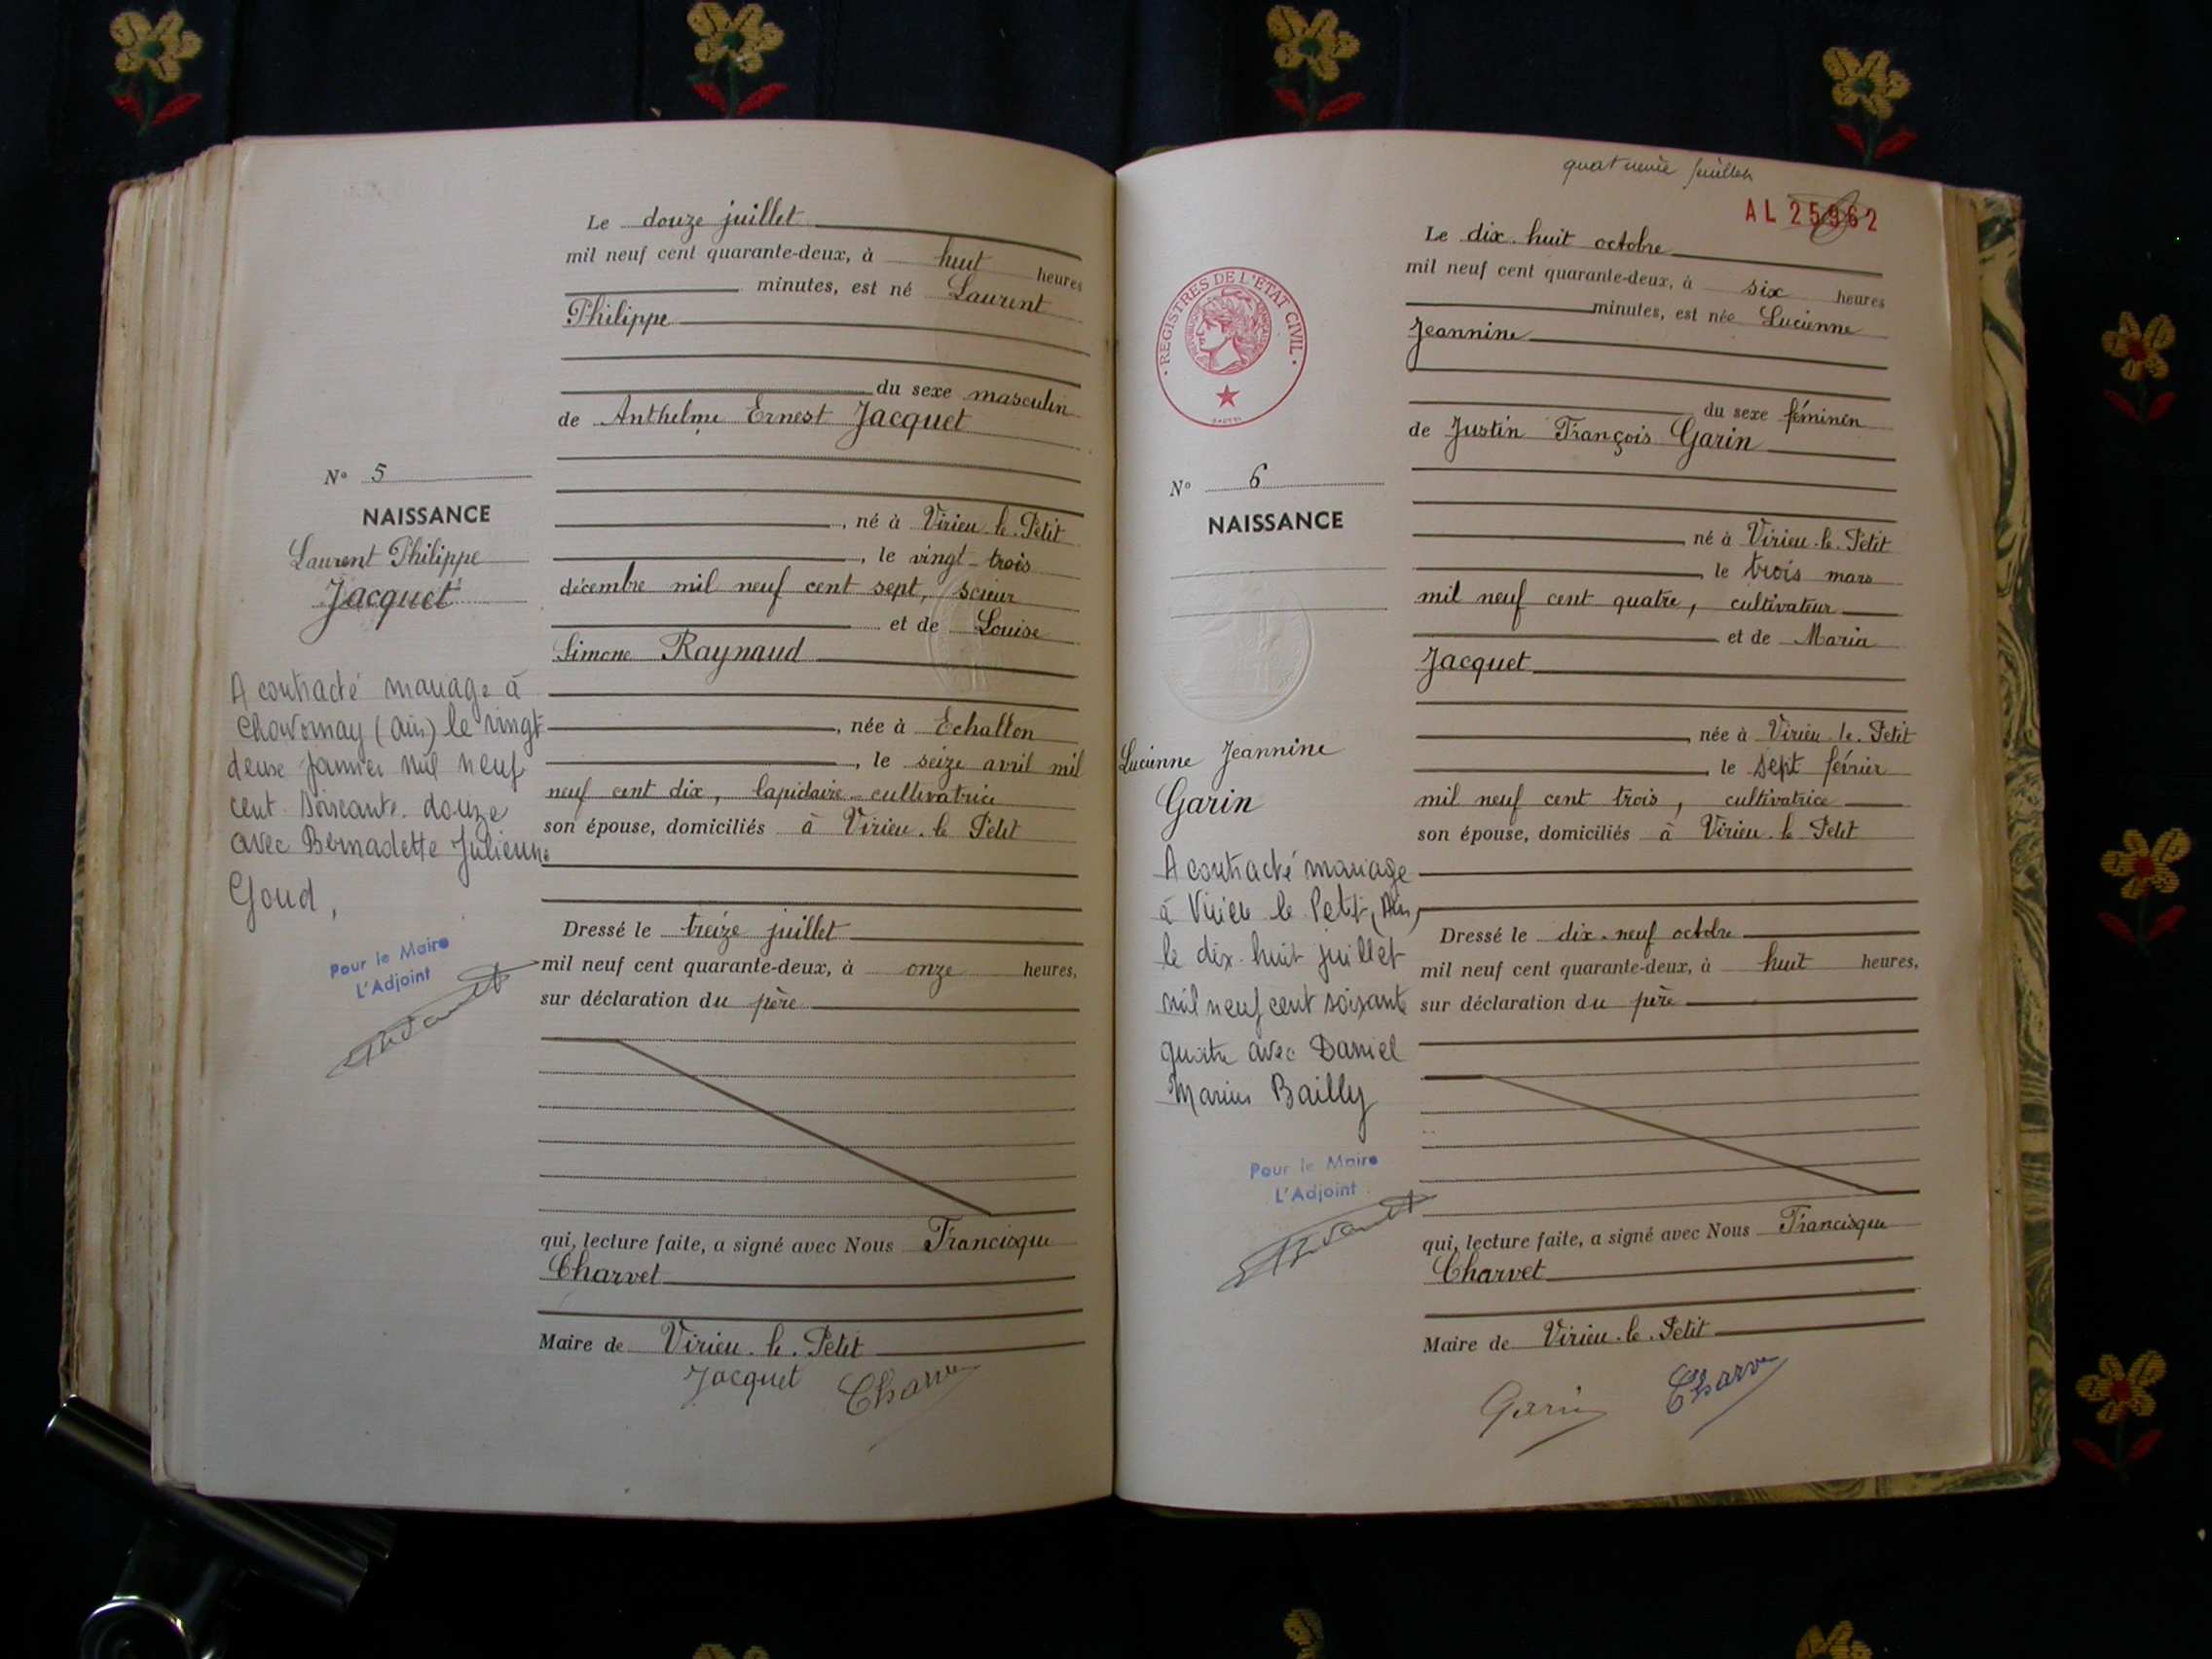 Le douze juillet
mil neuf cent quarante-deux, à huit heures
minutes, est né Laurent
Philippe
du sexe masculin
de Anthelme Ernest Jacquet
, né à Virieu-le-Petit
, le vingt-trois
décembre mil neuf cent sept, scieur
et de Louise
Simone Raynaud
, née à Echallon
, le seize avril mil
neuf cent dix, lapidaire-cultivatrice
son épouse, domiciliés à Virieu-le-Petit
Dressé le treize juillet
mil neuf cent quarante-deux, à onze heures,
sur déclaration du père
qui, lecture faite, a signé avec Nous Francisque
Charvet
Maire de Virieu-le-Petit
Jacquet
N° 5
NAISSANCE
Laurent Philippe
Jacquet
A contracté mariage à
(Ain) le vingt
deux janvier mil neuf
cent soixante-douze
avec Bernadette Julienne
Goud,
Pour le Maire
L'Adjoint
feuillet
AL 25962
Le dix-huit octobre
mil neuf cent quarante-deux, à six heures
minutes, est née Lucienne
Jeannine
du sexe féminin
de Justin François Garin
né à Virieu-le-Petit
, le trois mars
mil neuf cent quatre, cultivateur
et de Maria
Jacquet
, née à Virieu-le-Petit
, le sept février
mil neuf cent trois, cultivatrice
son épouse, domiciliés à Virieu-le-Petit
Dressé le dix-neuf octobre
mil neuf cent quarante-deux, à huit heures,
sur déclaration du père
qui, lecture faite, a signé avec Nous Francisque
Charvet
Maire de Virieu-le-Petit
Garin
REGISTRES DE L'ETAT CIVIL
N° 6
NAISSANCE
Lucienne Jeannine
Garin
A contracté mariage
à Virieu le Petit (Ain)
le dix-huit juillet
mil neuf cent soixante
quatre avec Daniel
Marius Bailly
Pour le Maire
L'Adjoint